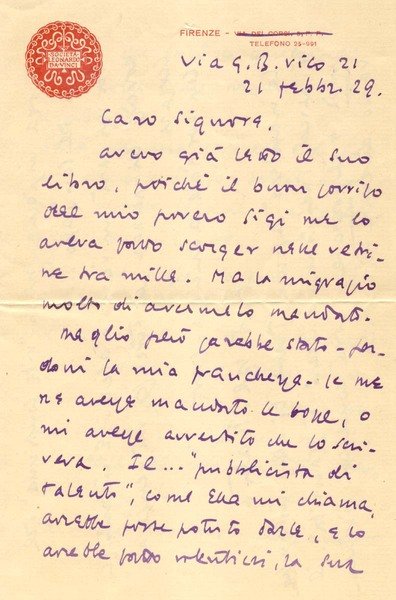 SOCIETÀ
LEONARDO
DA VINCI
FIRENZE - VIA DEI CORSI, 3, P. P.
TELEFONO 25-991
Via G. B. Vico 21
21 febbr. 29.
Caro Signore,
avevo già letto il suo
libro, poiché il buon sorriso
del mio povero Sigi me lo
aveva fatto scorger nelle vetri-
ne tra mille. Ma la ringrazio
molto di avermelo mandato.
Meglio però sarebbe stato - per-
doni la mia franchezza - se me
ne avesse mandato le bozze, o
mi avesse avvertito che lo scri-
veva. Il... "pubblicista di
talento", come Ella mi chiama,
avrebbe forse potuto darle, e lo
avrebbe fatto volentieri, la sua